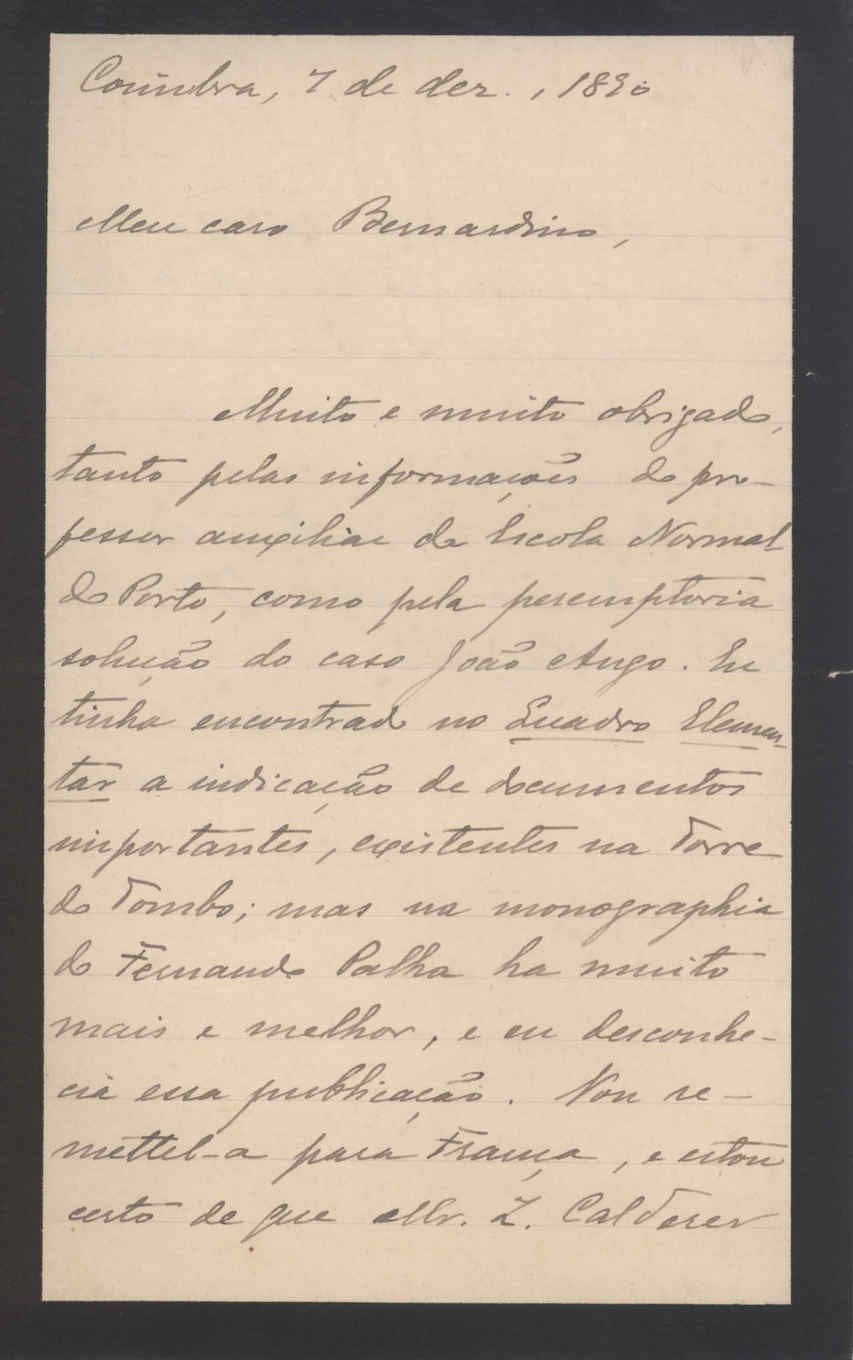 Coimbra, 7 de dez., 1890
Meu caro Bernardino,
Muito e muito obrigado,
tanto pelas informações do pro-
fessor auxiliar da Escola Normal
do Porto, como pela peremptoria
solução do caso João Ango. Eu
tinha encontrado no Quadro Elemen-
tar a indicação de documentos
importantes, existentes na Torre
do Tombo; mas na monographia
do Fernando Palha ha muito
mais e melhor, e eu desconhe-
cia essa publicação. Vou re-
mettel-a para França, e estou
certo de que Mr.